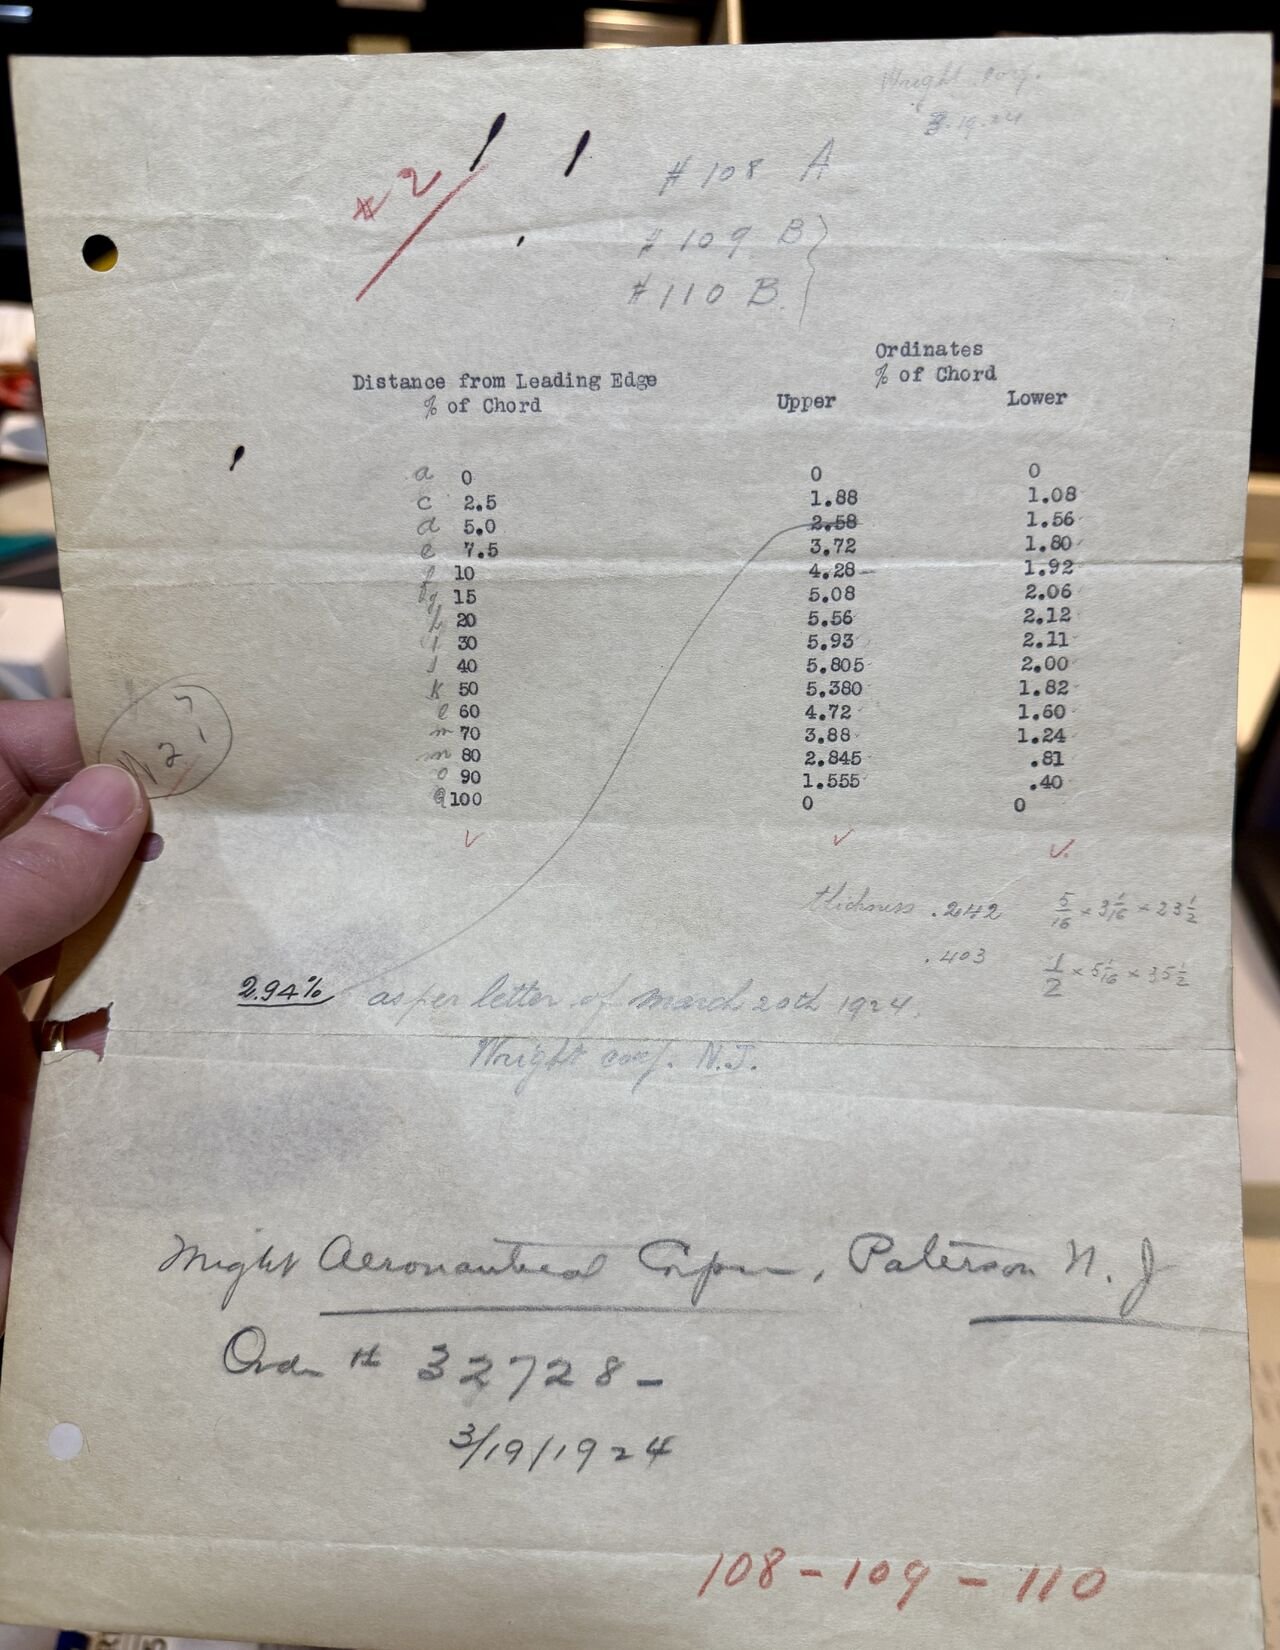 Wright Corp.
3.19.24
#2
#108 A
#109 B
#110 B.
Ordinates
% of Chord
Distance from Leading Edge
% of Chord
Upper Lower
a 0 0 0
c 2.5 1.88 1.08
d 5.0 2.58 1.56
e 7.5 3.72 1.80
f 10 4.28 1.92
g 15 5.08 2.06
h 20 5.56 2.12
i 30 5.93 2.11
j 40 5.805 2.00
k 50 5.380 1.82
l 60 4.72 1.60
m 70 3.88 1.24
n 80 2.845 .81
o 90 1.555 .40
100 0 0
N2?
thickness .242 5/16 × 3 1/16 × 23 1/2
.403 1/2 × 5 1/16 × 35 1/2
2.94% as per letter of March 20th 1924.
Wright corp. N.J.
Wright Aeronautical Corpn, Paterson N.J
Order # 32728-
3/19/1924
108-109-110